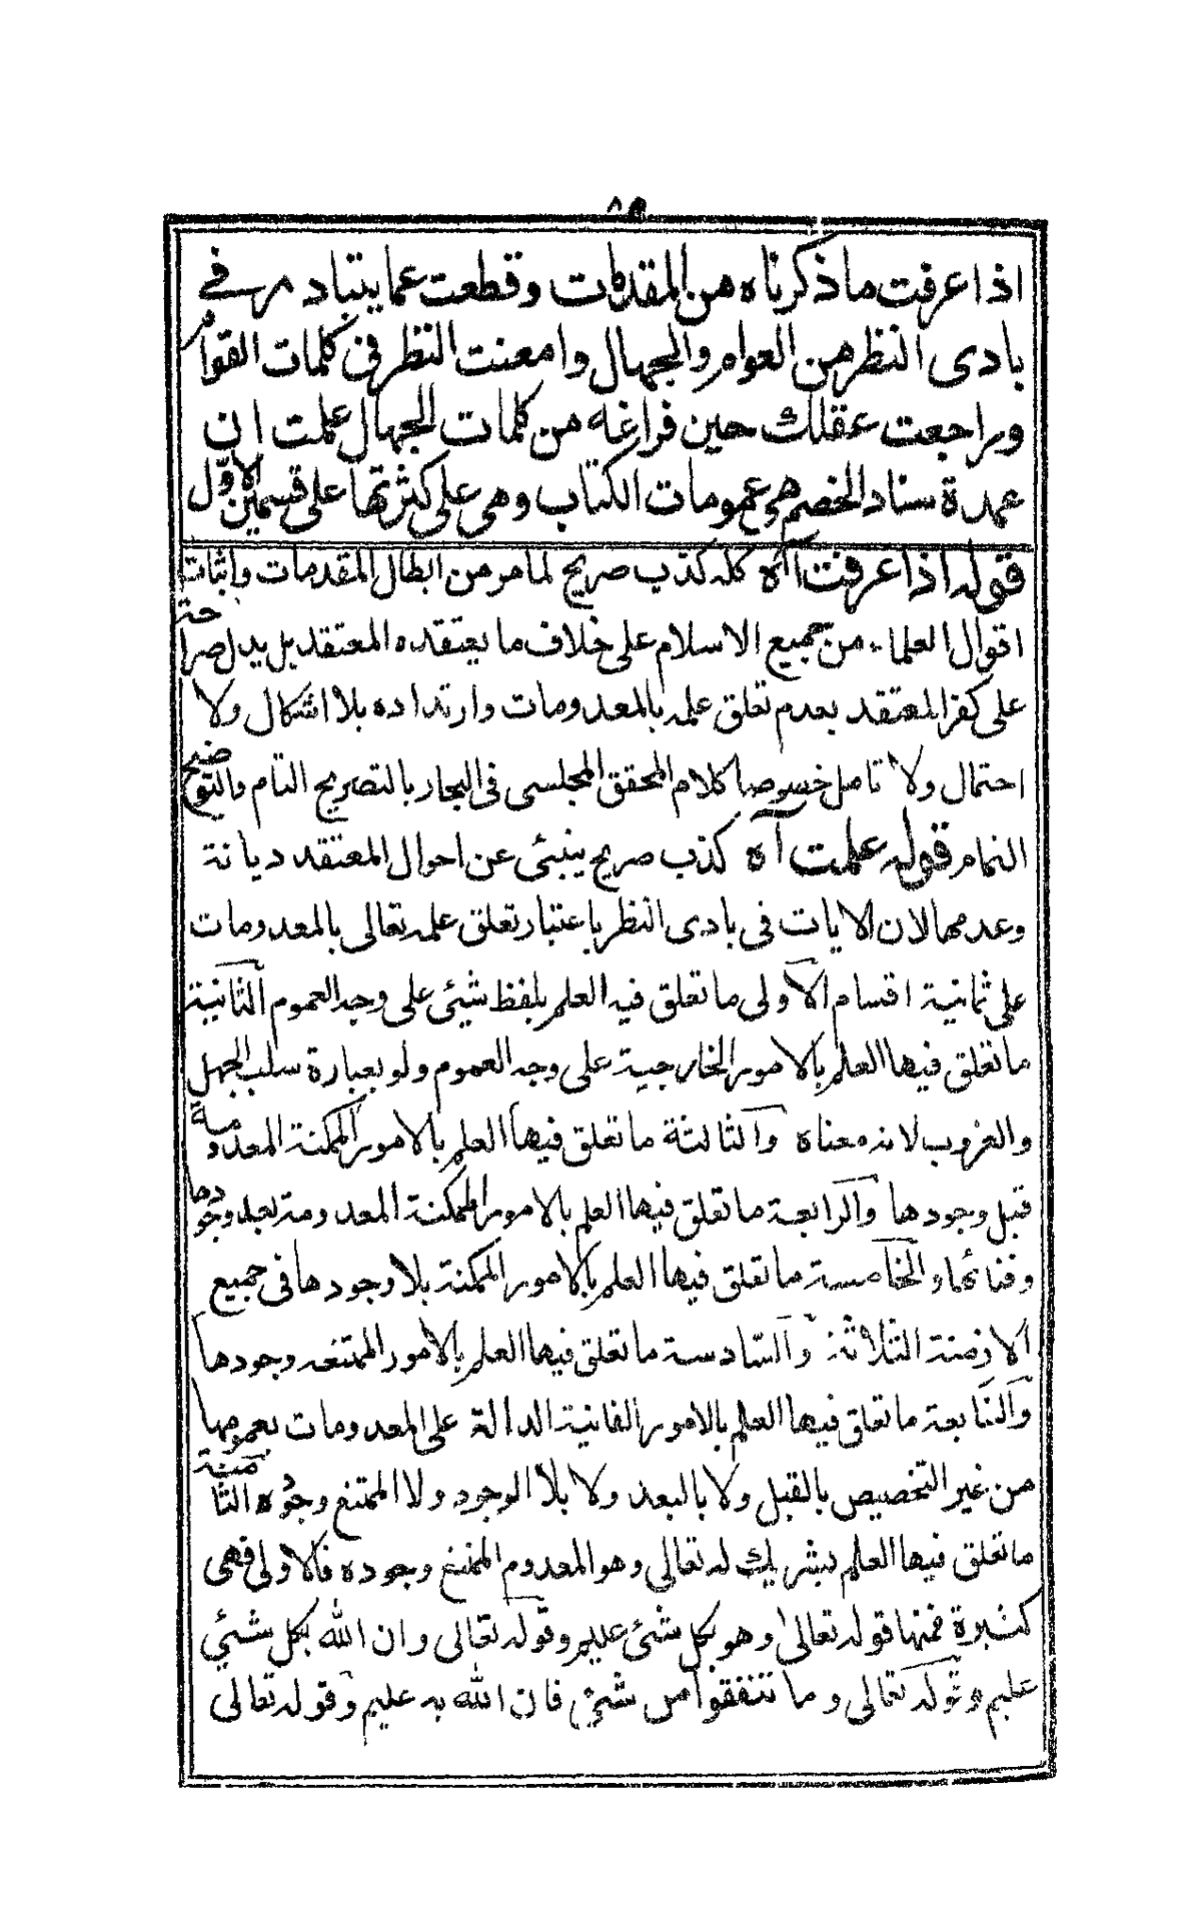 ٨٥
اذا عرفت ما ذكرناه من المقدمات وقطعت عما يتبادر في
بادى النظر من العوام والجهال وامعنت النظر فى كلمات القوام
وراجعت عقلك حين فراغه من كلمات الجهال علمت ان
عمدة سناد الخصم هى عمومات الكتاب وهى على كثرتها على قسمين الاوّل
قوله اذا عرفت آه كله كذب صريح لما مر من ابطال المقدمات واثبات
اقوال العلماء من جميع الاسلام على خلاف ما يعتقده المعتقد بل يدل صراحة
على كفر المعتقد بعدم تعلق علمه بالمعدومات وارتداده بلا اشكال ولا
احتمال ولا تامل خسوصا كلام المحقق المجلسى فى البحار بالتصريح التام والتوضيح
التمام قوله علمت آه كذب صريح ينبئى عن احوال المعتقد ديانة
وعدمها لان الايات فى بادى النظر باعتبار تعلق علمه تعالى بالمعدومات
على ثمانية اقسام الآولى ما تعلق فيه العلم بلفظ شيئى على وجه العموم الثانية
ما تعلق فيها العلم بالامور الخارجية على وجه العموم ولو بعبارة سلب الجهل
والعزوب لانه معناه والثالثة ما تعلق فيها العلم بالامور الممكنة المعدومة
قبل وجودها والرابعة ما تعلق فيها العلم بالامور الممكنة المعدومة بعد وجودها
وفنائها والخامسة ما تعلق فيها العلم بالامور الممكنة بلا وجودها فى جميع
الازمنة الثلاثة والسّادسة ما تعلق فيها العلم بالامور الممتنعه وجودها
والسّابعة ما تعلق فيها العلم بالامور الفانية الدالة على المعدومات بعمومها
من غير التخصيص بالقبل ولا بالبعد ولا بلا الوجود ولا الممتنع وجوده الثامنة
ما تعلق فيها العلم بشريك له تعالى وهو المعدوم الممتنع وجوده فالاولى فهى
كثيرة فمنها قوله تعالى وهو بكل شئى عليم وقوله تعالى وان الله بكل شئي
عليم وقوله تعالى وما تنفقوا من شئ فان الله به عليم وقوله تعالى